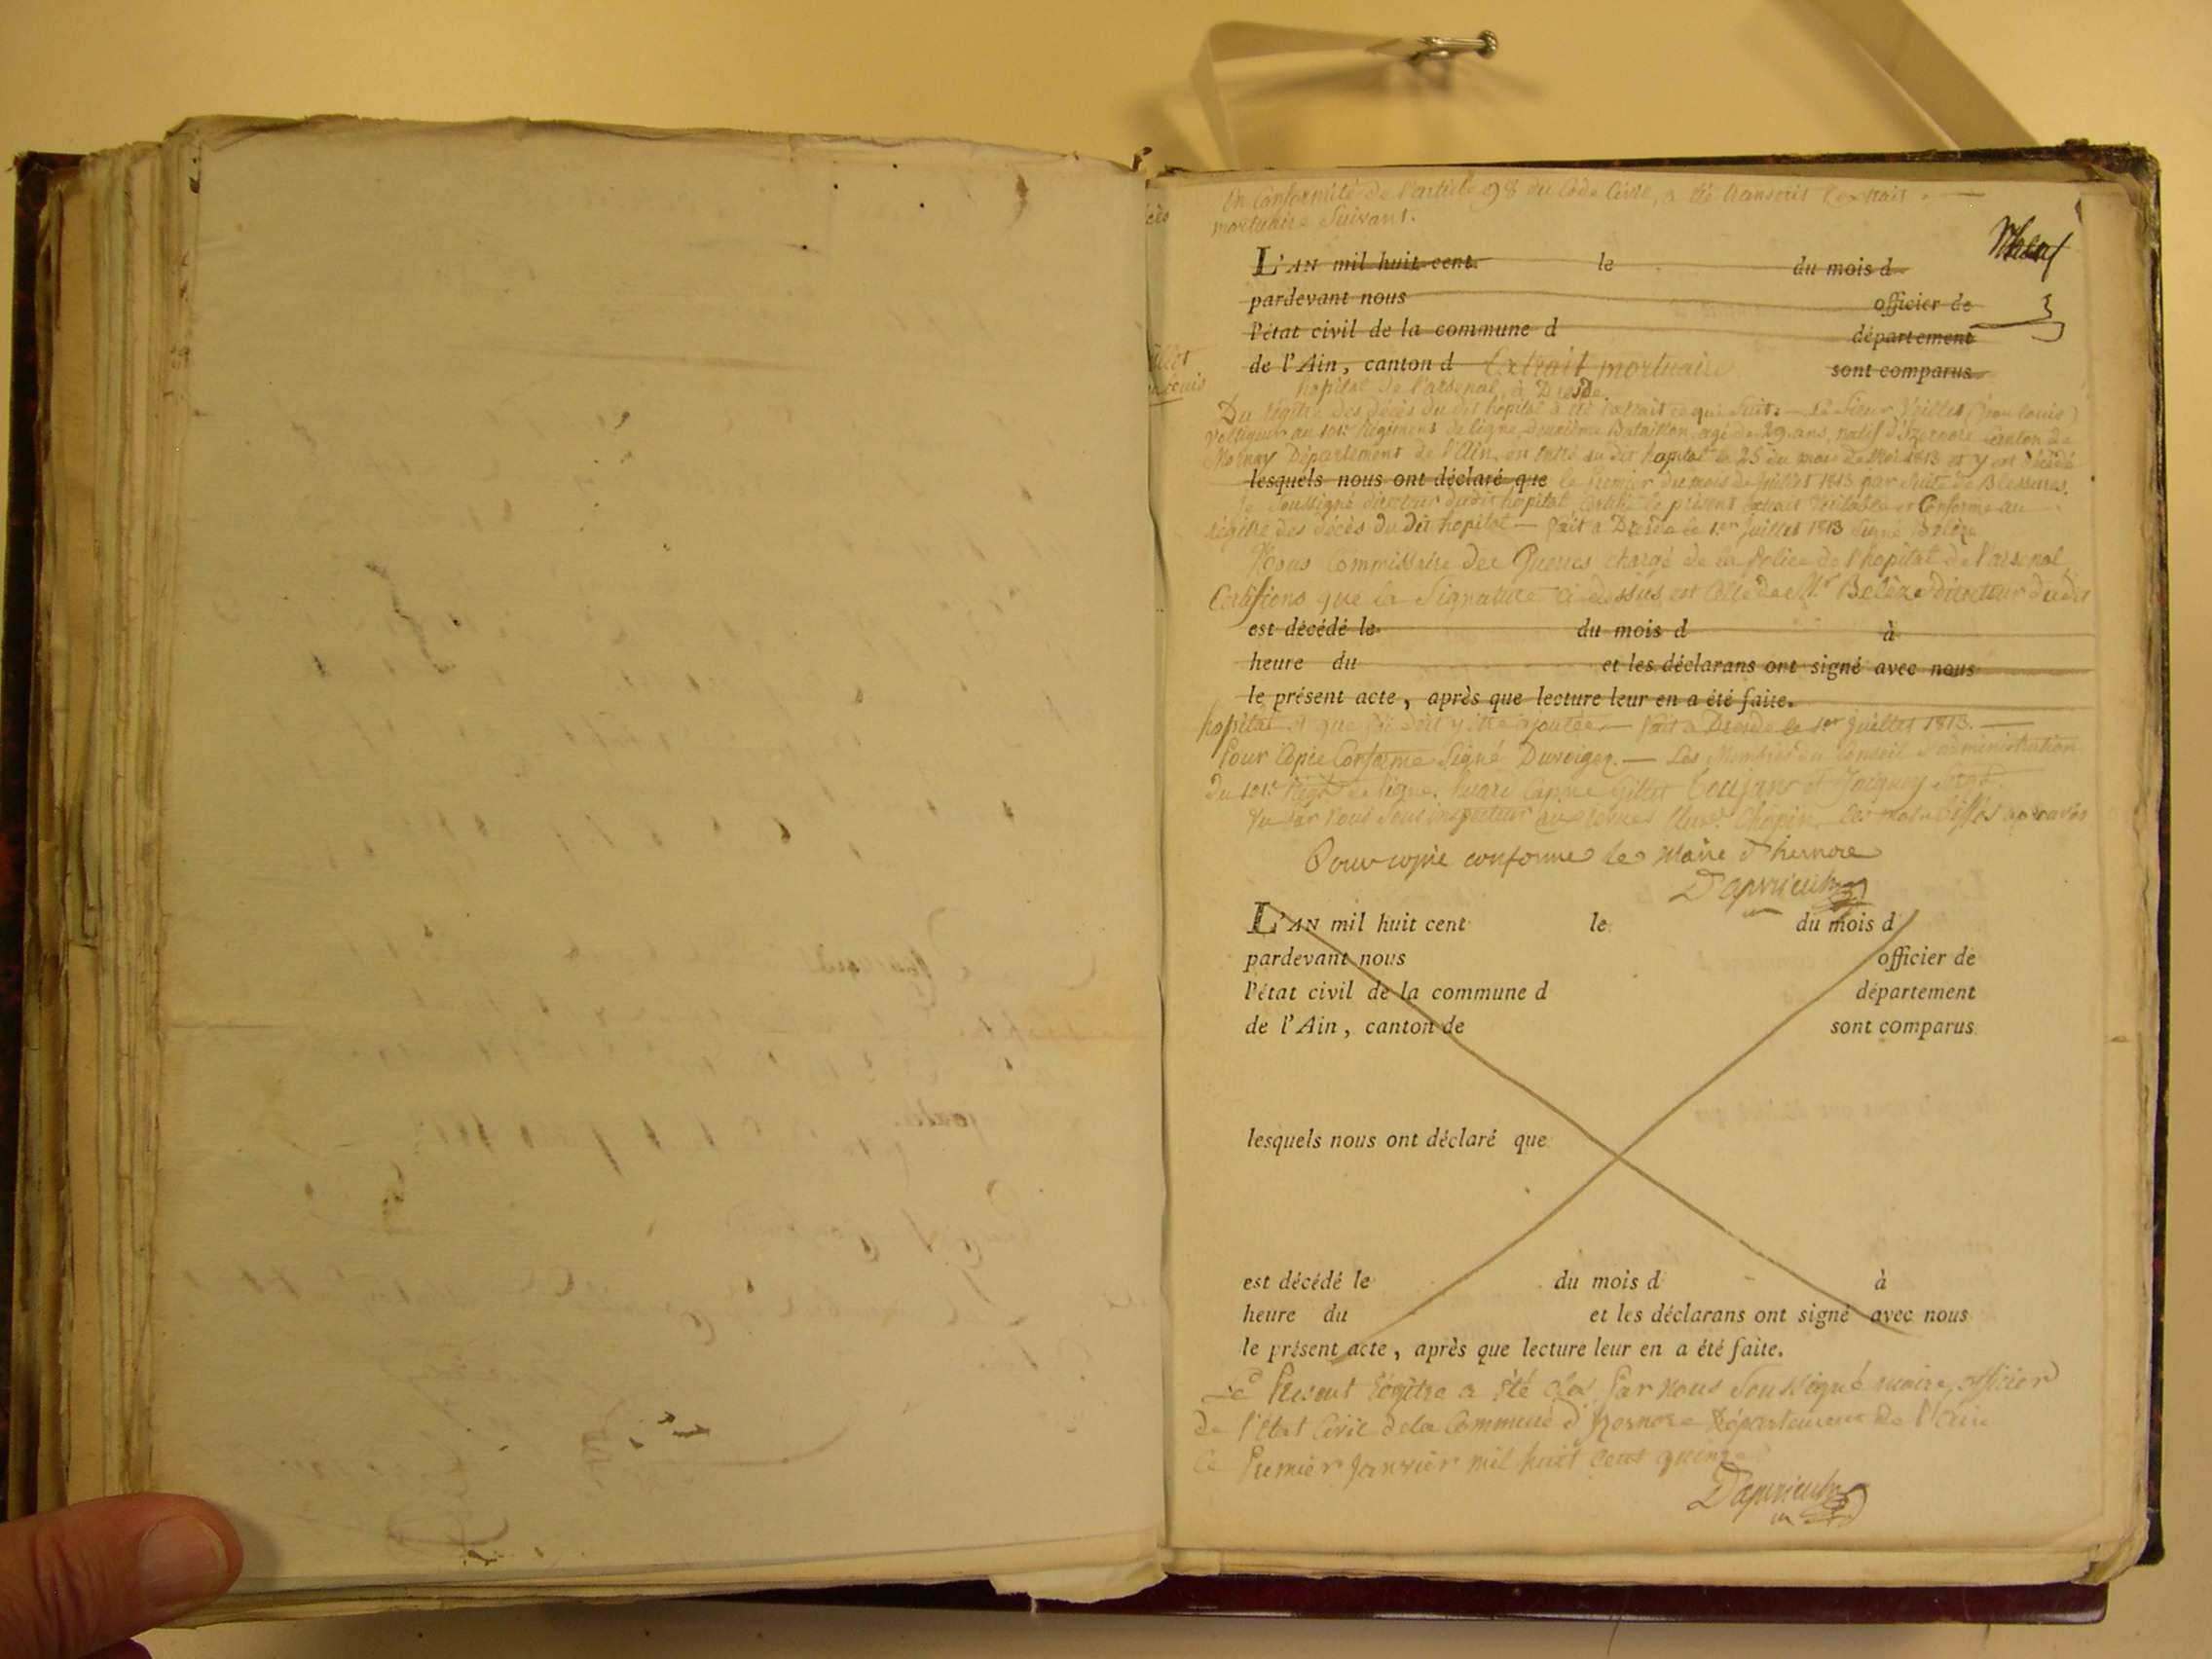 En Conformité de l'article 98 du Code Civil, a été transcrit l'extrait
mortuaire Suivant.
L'AN mil huit cent le du mois d
pardevant nous officier de
l'état civil de la commune d département
de l'Ain, canton d Extrait mortuaire sont comparus
hopital de l'arsenal, à Dresde.
Du régitre des décès du dit hopital à été extrait ce qui suit. — Le Sieur (jean louis)
voltigeur au 101e Régiment de ligne, deuxième Bataillon, agé de 29 ans, natif d'Izernore Canton de
Département de l'Ain, est entré au dit hopital le 25 du mois de Mai 1813 et y est décédé
lesquels nous ont déclaré que le Premier du mois de Juillet 1813 par suite de Blessures.
Je Soussigné directeur du dit hopital, Certifie le présent Extrait Véritable et Conforme au
régitre des décès du dit hopital — fait a Dresde le 1er juillet 1813 Signé Belèze
Nous Commissaire des Guerres chargé de la Police de l'hopital de l'arsenal
Certifions que la Signature ci dessus est celle de Mr Belèze directeur du dit
est décédé le du mois d à
heure du et les déclarans ont signé avec nous
le présent acte, après que lecture leur en a été faite.
hopital et que foi doit y être ajoutée — fait a Dresde le 1er juillet 1813. —
Pour Copie Conforme Signé — Les Membres du Conseil d'administration
du 101e Régt de ligne. Gillet et
Vu par Nous Sous inspecteur aux revues les mots biffés aprouvés
Pour copie conforme le Maire
L'AN mil huit cent le du mois d
pardevant nous officier de
l'état civil de la commune d département
de l'Ain, canton de sont comparus
lesquels nous ont déclaré que
est décédé le du mois d à
heure du et les déclarans ont signé avec nous
le présent acte, après que lecture leur en a été faite.
Le Present Régitre a été clos Par Nous Soussigné maire, officier
de l'état Civil de la Commune d'Izernore Département de l'Ain
le Premier Janvier mil huit Cent quinze